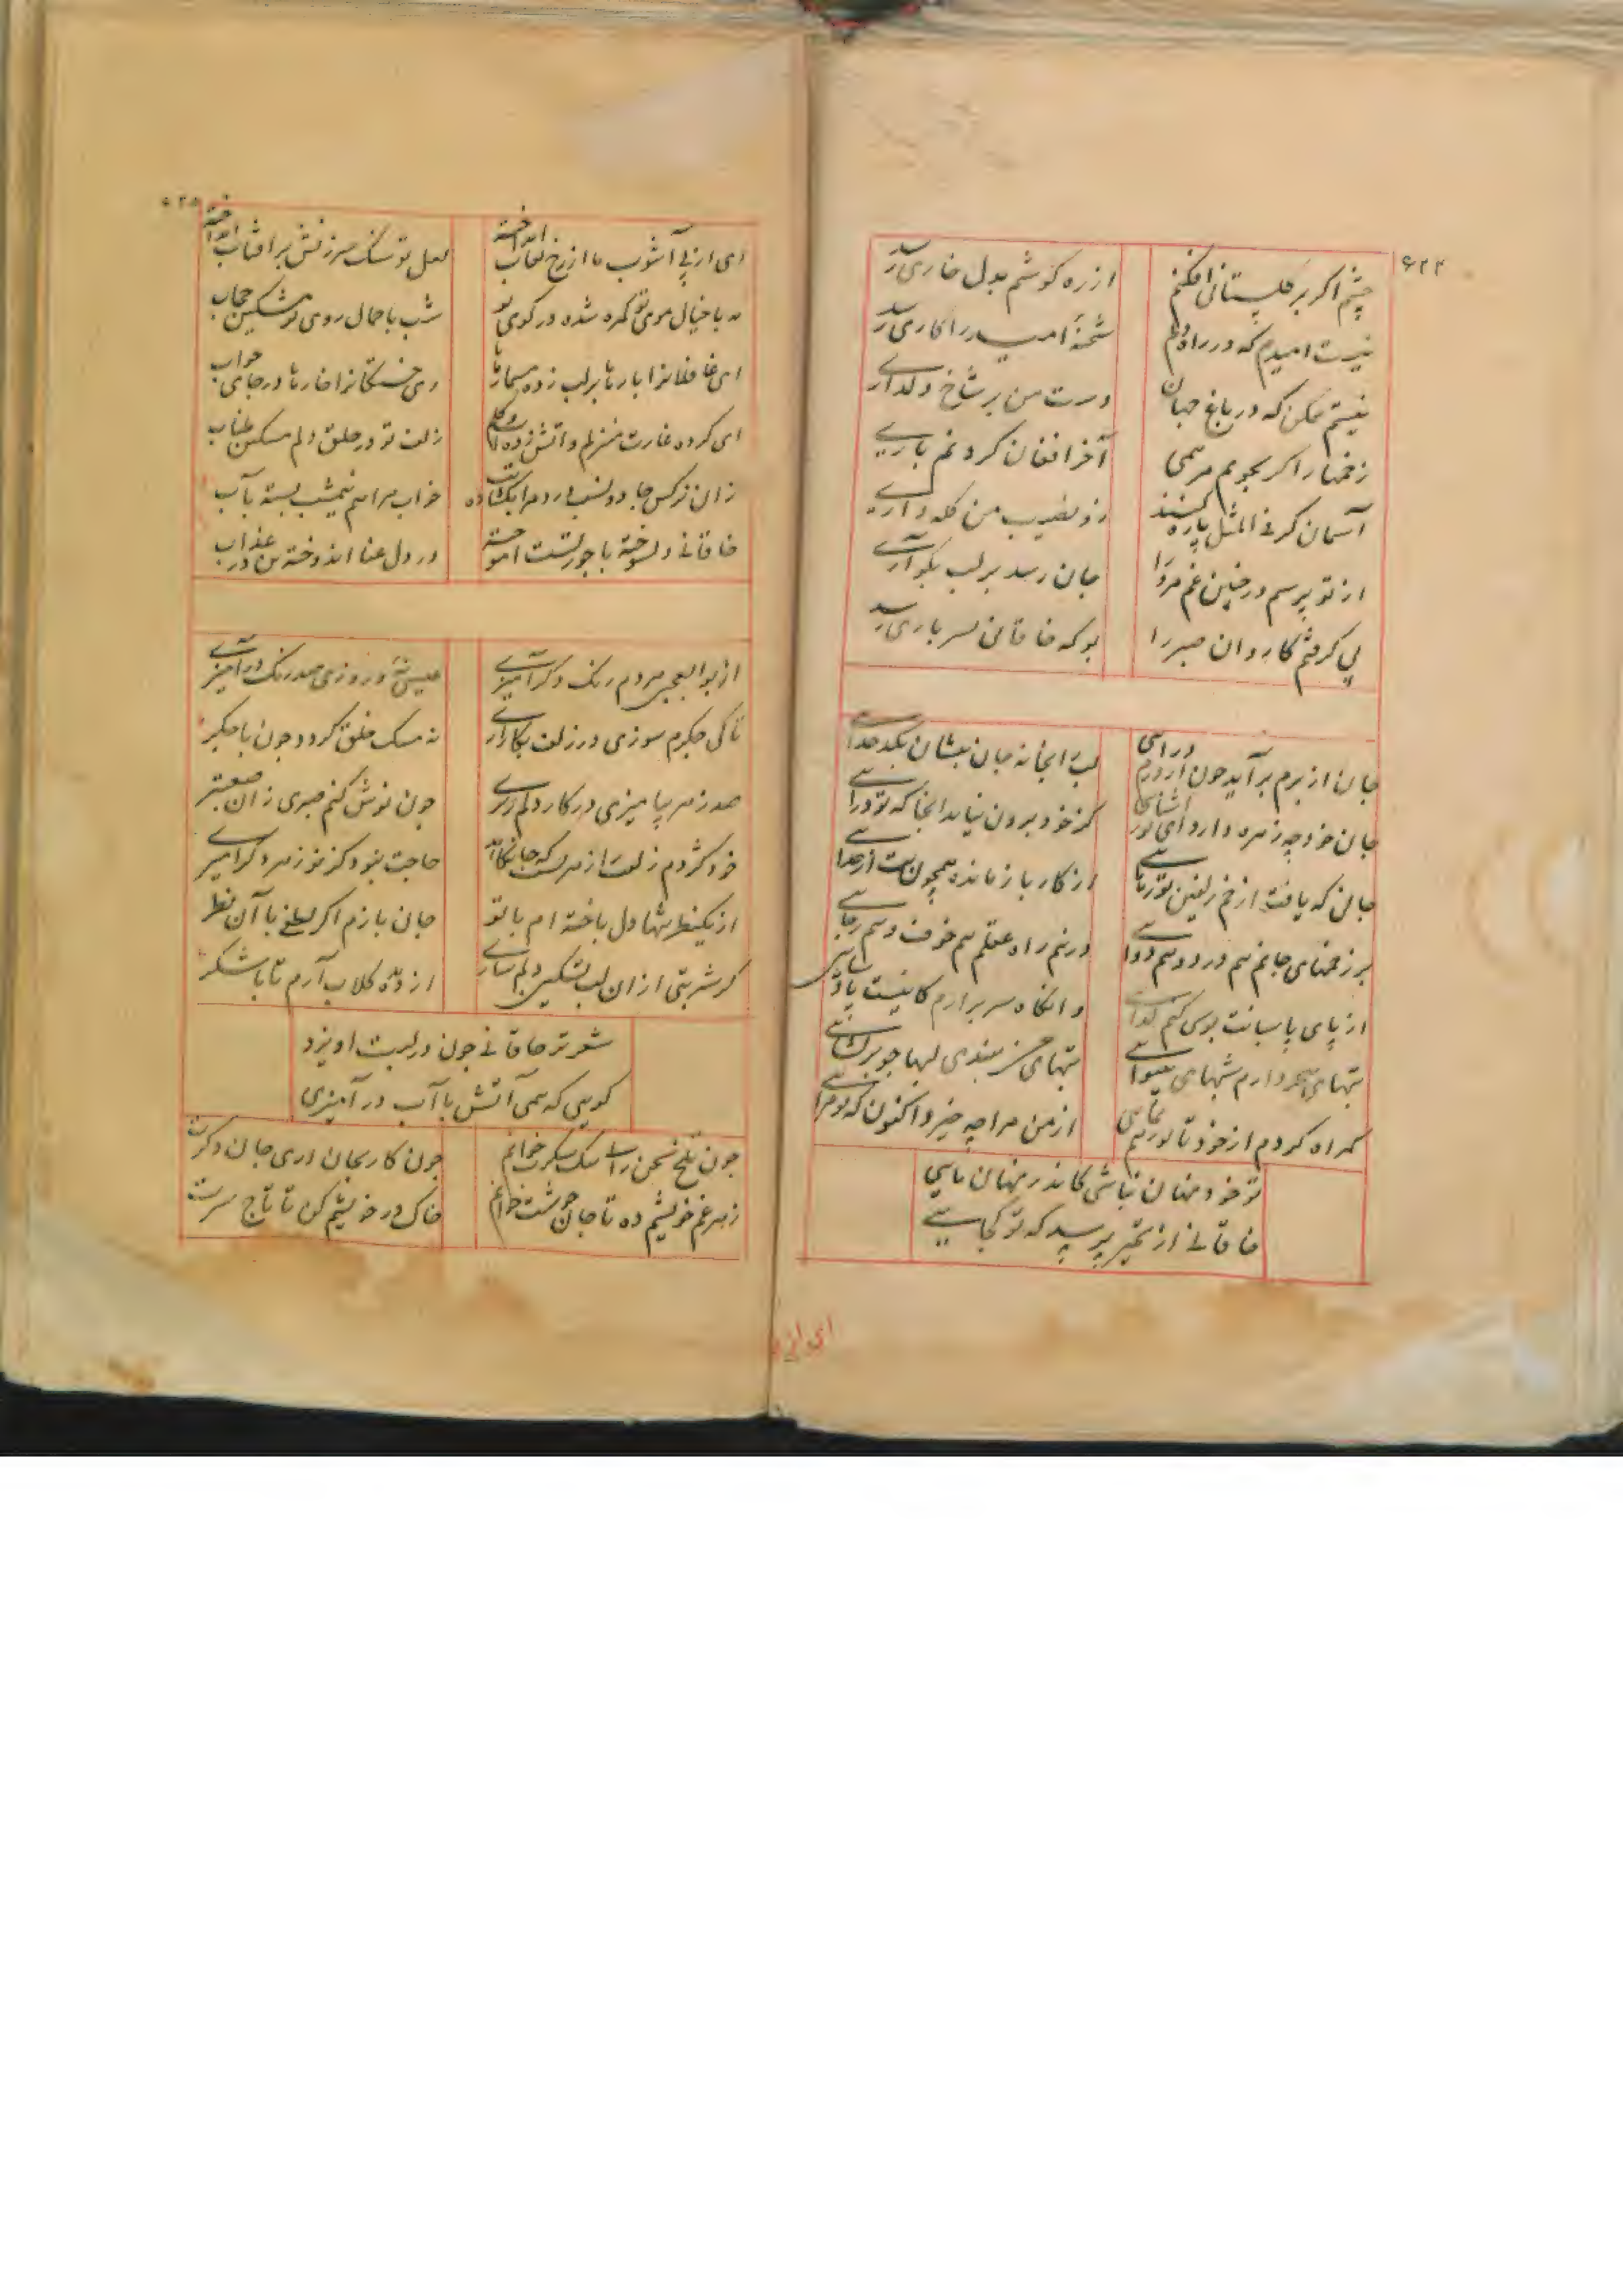 ۶۲۴
چشم اگر بر گلستانی افکنم از ره گوشم بدل خاری رسد
نیست امیدم که در راه دلم شحنهٔ امید را کاری رسد
نیستم ممکن که در باغ جهان دست من بر شاخ دلداری رسد
زخمها را گر بجویم مرهمی آخر افغان کردنم باری رسد
آسمان گر فی المثل پاره کنند زو نصیب من کله داری رسد
از تو پرسم در چنین غم مرد را جان رسد بر لب بگو آری رسد
پی گرفتم کاروان صبر را بو که خاقانی بسر باری رسد
جان از برم برآید چون از درم درآیی لب را بجای جان بنشان بکدخدایی
جان خود چه زهره دارد ای نور آشنایی کز خود برون نیاید آنجا که تو درآیی
جانی که یافت از خم زلفین تو رهایی از کار باز ماند همچون بت از خدایی
بر زخمهای جانم هم درد و هم دوایی در نیم راه عقلم هم خوف و هم رجایی
از پای پاسبانت بوسی کنم گدایی وانگاه سر برآرم کاینست پادشایی
تبهای هجر دارم شبهای بینوایی تبهای من ببندی لبها چو برگشایی
گمراه گردم از خود تا تو رهم نمایی از من مرا چه خیزد اکنون که تو مرایی
تو خود نهان نباشی کاندر نهان مایی
خاقانی از تحیر پرسد که تو کجایی
ای از پی
۶۲۵
ای از پی آشوب ما از رخ نقاب انداخته لعل تو سنگ سرزنش بر آفتاب انداخته
مه با خیال موی تو گمره شده در کوی تو شب با جمال روی تو مشکین حجاب
ای عاقلانرا بارها بر لب زده مسمارها وی خستگانرا خارها در جای خواب
ای کرده غارت منزلم و آتش زده آب و گلم زلف تو در حلق دلم مشکین طناب
زان نرگس جادو نسب دارد مرا بگشاده خواب مرا هم نیمشب بسته بآب
خاقانی دلسوخته با جور تست آموخته در دل عنا اندوخته تن در عذاب
از بوالعجبی هر دم رنگ دگر آمیزی عیسی نه و روزی صد رنگ درآمیزی
تا کی جگرم سوزی در زلف بکار آری نه مشک خلق گردد چون با جگر
صد زهر بیامیزی در کار دلم ریزی چون نوش کنم صبری زان صعبتر
خود کژدم زلفت را زهریست که جانکاهد حاجت نبود کز نو زهر دگر آمیزی
از یک نظر تنها دل باخته ام با تو جان بازم اگر لطفی با آن نظر
گر شربتی از آن لب تسکین دلم سازی از دیده گلاب آرم تا با شکر
شعر تر خاقانی چون در لبت آویزد
گویی که همی آتش با آب درآمیزی
چون تلخ سخن رانی تنگ شکرت خوانم چون کار بجان آری جان دگرت
زهر غم خویشم ده تا جان خوشت خوانم خاک در خویشم کن تا تاج سرت